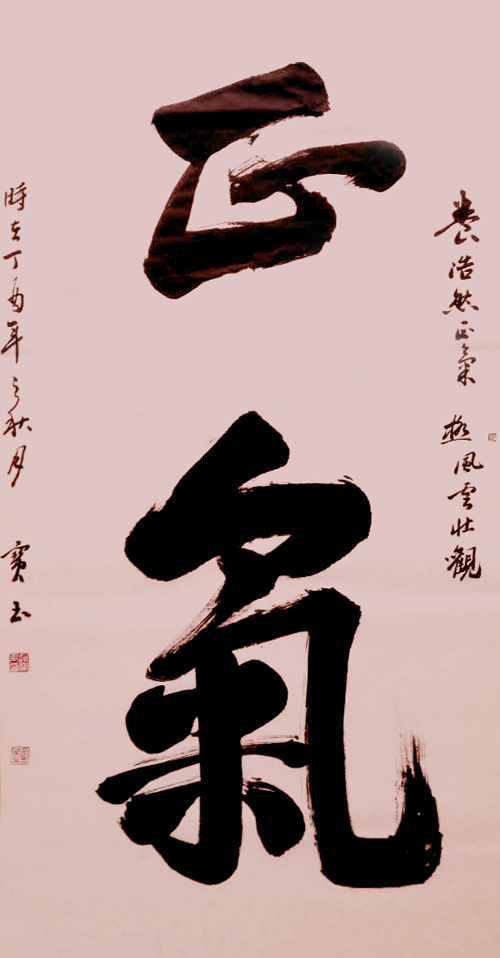 正氣
養浩然正氣 極風雲壯觀
時在丁酉年之秋月 寶玉